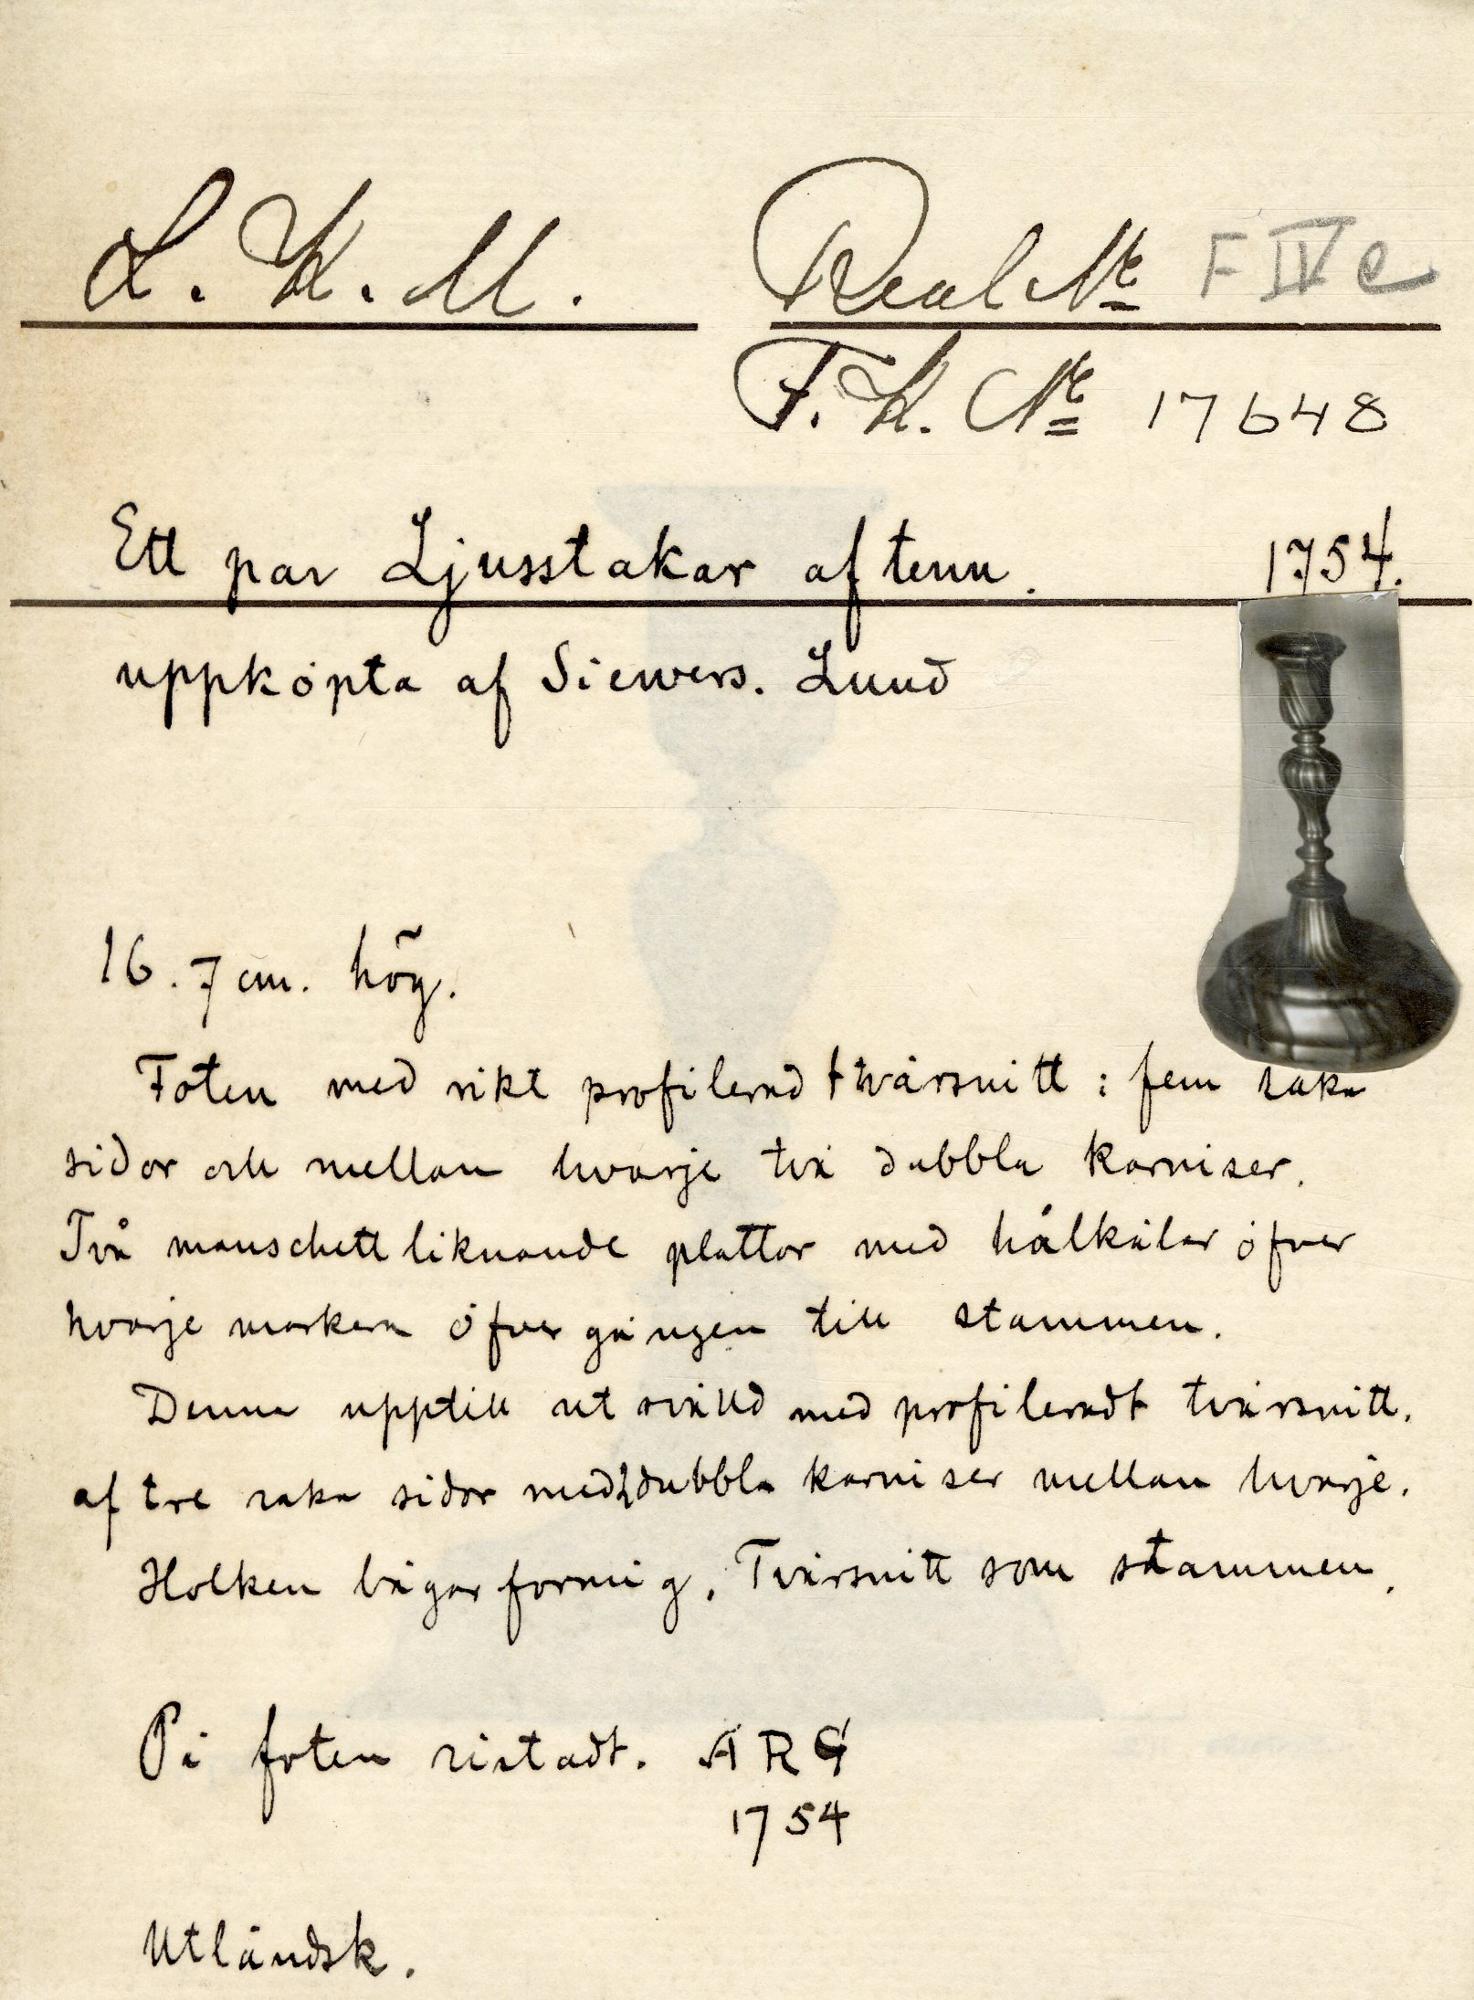 L. K. M.
Real Nr F IV e
F. K. Nr 17648
Ett par Ljusstakar af tenn. 1754.
uppköpta af Siewers. Lund
16.7 cm. hög.
Foten med rikt profilerad tvärsnitt: fem raka
sidor och mellan hvarje två dubbla karniser.
Två manschettliknande plattor med hålkälar öfver
hvarje markera öfvergången till stammen.
Denna upptill utsvälld med profileradt tvärsnitt.
af tre raka sidor med 2 dubbla karniser mellan hvarje.
Holken bägarformig. Tvärsnitt som stammen.
På foten ristadt. ARG
1754
Utländsk.